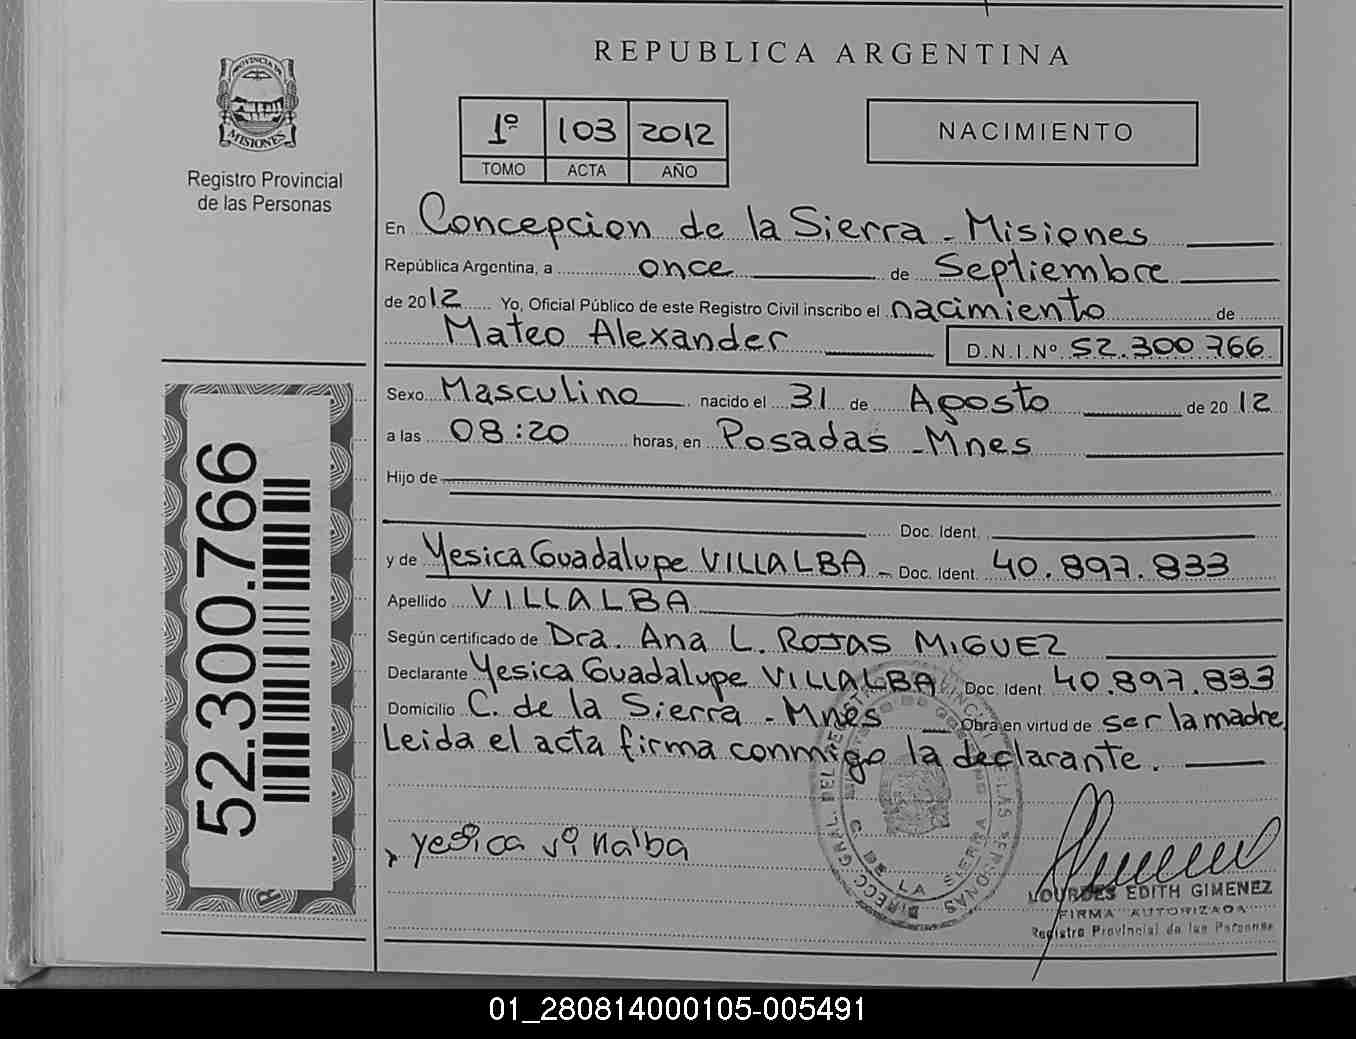 PROVINCIA DE
MISIONES
Registro Provincial
de las Personas
REPUBLICA ARGENTINA
1º 103 2012
TOMO ACTA AÑO
NACIMIENTO
En Concepcion de la Sierra - Misiones
República Argentina, a once de Septiembre
de 2012 Yo, Oficial Público de este Registro Civil inscribo el nacimiento de
Mateo Alexander D.N.I.Nº 52.300.766
Sexo Masculino nacido el 31 de Agosto de 2012
a las 08:20 horas, en Posadas - Mnes
Hijo de
Doc. Ident.
y de Yesica Guadalupe VILLALBA - Doc. Ident. 40.897.833
Apellido VILLALBA
Según certificado de Dra. Ana L. ROJAS MIGUEZ
Declarante Yesica Guadalupe VILLALBA Doc. Ident. 40.897.833
Domicilio C. de la Sierra - Mnes Obra en virtud de ser la madre
Leida el acta firma conmigo la declarante.
yesica villalba
C. DE LA SIERRA
LOURDES EDITH GIMENEZ
FIRMA AUTORIZADA
Registro Provincial de las Personas
52.300.766
01_280814000105-005491